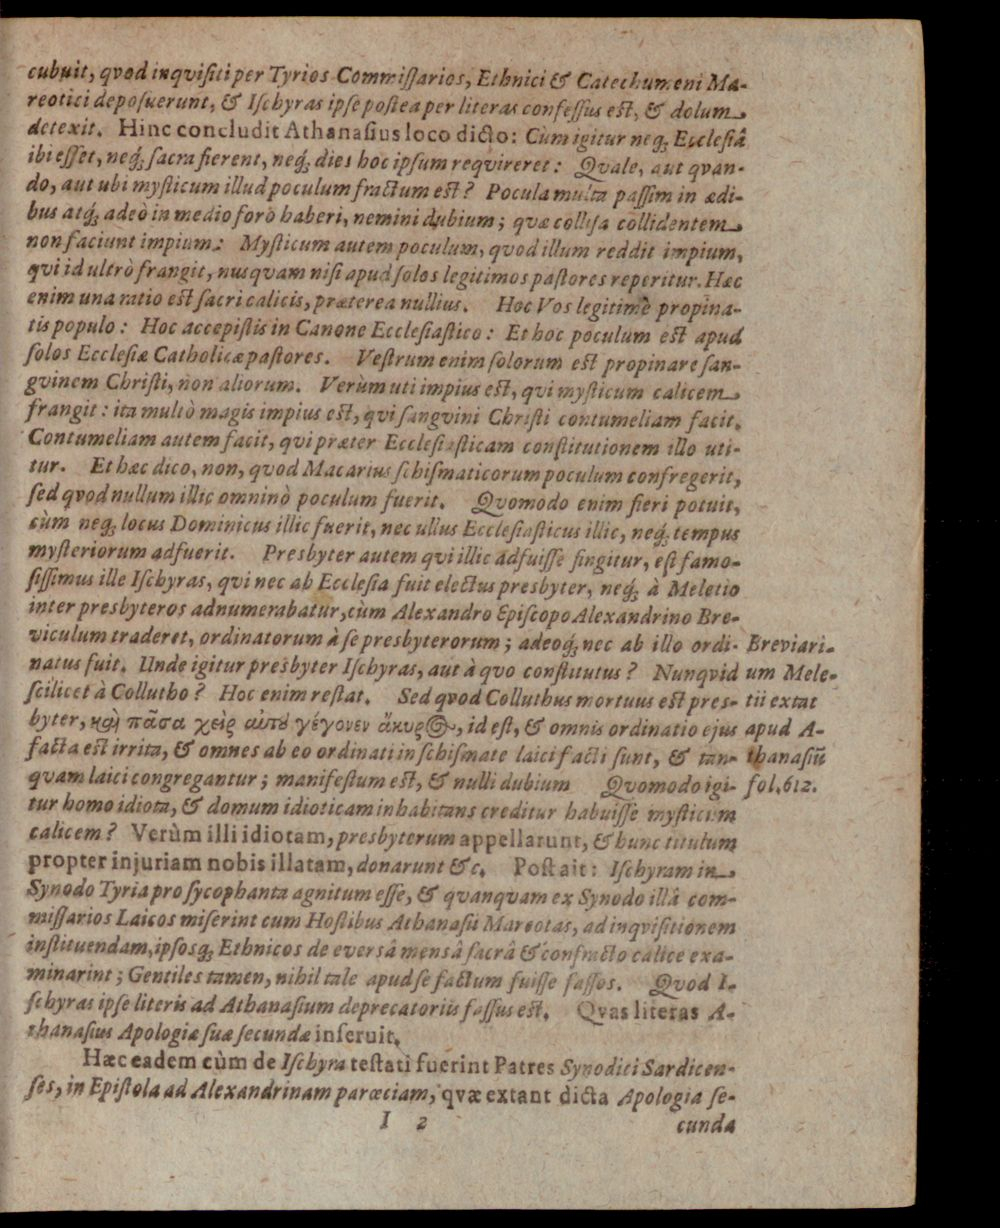 cubuit, qvod inqvisiti per Tyrios Commissarios, Ethnici & Catechumeni Ma-
reotici deposuerunt, & Ischyras ipse postea per literas confessus est, & dolum
detexit. Hinc concludit Athanasius loco dicto: Cùm igitur neq; Ecclesiâ
ibi esset, neq; sacra fierent, neq; dies hoc ipsum reqvireret: Qvale, aut qvan-
do, aut ubi mysticum illud poculum fractum est? Pocula multa passim in ædi-
bus atq; adeò in medio foro haberi, nemini dubium; qvæ collisa collidentem
non faciunt impium: Mysticum autem poculum, qvod illum reddit impium,
qvi id ultrò frangit, nusquam nisi apud solos legitimos pastores reperitur. Hæc
enim una ratio est sacri calicis, præterea nullius. Hoc Vos legitimè propina-
tis populo: Hoc accepistis in Canone Ecclesiastico: Et hoc poculum est apud
solos Ecclesiæ Catholicæ pastores. Vestrum enim solorum est propinare san-
gvinem Christi, non aliorum. Verùm uti impius est, qvi mysticum calicem
frangit: ita multò magis impius est, qvi sangvini Christi contumeliam facit.
Contumeliam autem facit, qvi præter Ecclesiasticam constitutionem illo uti-
tur. Et hæc dico, non, qvod Macarius schismaticorum poculum confregerit,
sed qvod nullum illic omninò poculum fuerit. Qvomodo enim fieri potuit,
cùm neq; locus Dominicus illic fuerit, nec ullus Ecclesiasticus illic, neq; tempus
mysteriorum adfuerit. Presbyter autem qvi illic adfuisse fingitur, est famo-
sissimus ille Ischyras, qvi nec ab Ecclesia fuit electus presbyter, neq; à Meletio
inter presbyteros adnumerabatur, cùm Alexandro Episcopo Alexandrino Bre-
viculum traderet, ordinatorum à se presbyterorum; adeoq; nec ab illo ordi-
natus fuit. Unde igitur presbyter Ischyras, aut à qvo constitutus? Nunqvid
scilicet à Collutho? Hoc enim restat. Sed qvod Colluthus mortuus est pres-
byter, καὶ πᾶσα χεὶρ αὐτοῦ γέγονεν ἄκυρος, id est, & omnis ordinatio ejus
facta est irrita, & omnes ab eo ordinati in schismate laici facti sunt, & tan-
quam laici congregantur; manifestum est, & nulli dubium Qvomodo igi-
tur homo idiota, & domum idioticam inhabitans creditur habuisse mysticum
calicem? Verùm illi idiotam, presbyterum appellarunt, & hunc titulum
propter injuriam nobis illatam, donarunt &c. Post ait: Ischyram in
Synodo Tyria pro sycophanta agnitum esse, & qvanqvam ex Synodo illâ com-
missarios Laicos miserint cum Hostibus Athanasii Mareotas, ad inqvisitionem
instituendam, ipsosq; Ethnicos de eversâ mensâ sacrâ & confracto calice exa-
minarint; Gentiles tamen, nihil tale apud se factum fuisse fassos. Qvod I-
schyras ipse literis ad Athanasium deprecatoriis fassus est. Qvas literas A-
thanasius Apologiæ suæ secundæ inseruit.
Hæc eadem cùm de Ischyra testati fuerint Patres Synodici Sardicen-
ses, in Epistola ad Alexandrinam parœciam, qvæ extant dicta Apologia se-
I 2 cunda
Breviari-
um Mele-
tii extat
apud A-
thanasiũ
fol. 612.